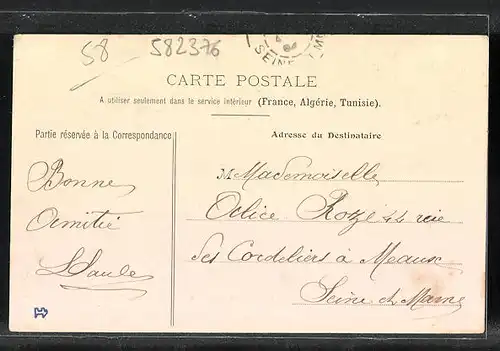 58 582376
SEINE
CARTE POSTALE
A utiliser seulement dans le service intérieur (France, Algérie, Tunisie).
Partie réservée à la Correspondance
Adresse du Destinataire
Mademoiselle
Bonne
Alice 44 rue
Amitié
des Cordeliers à Meaux
Seine et Marne